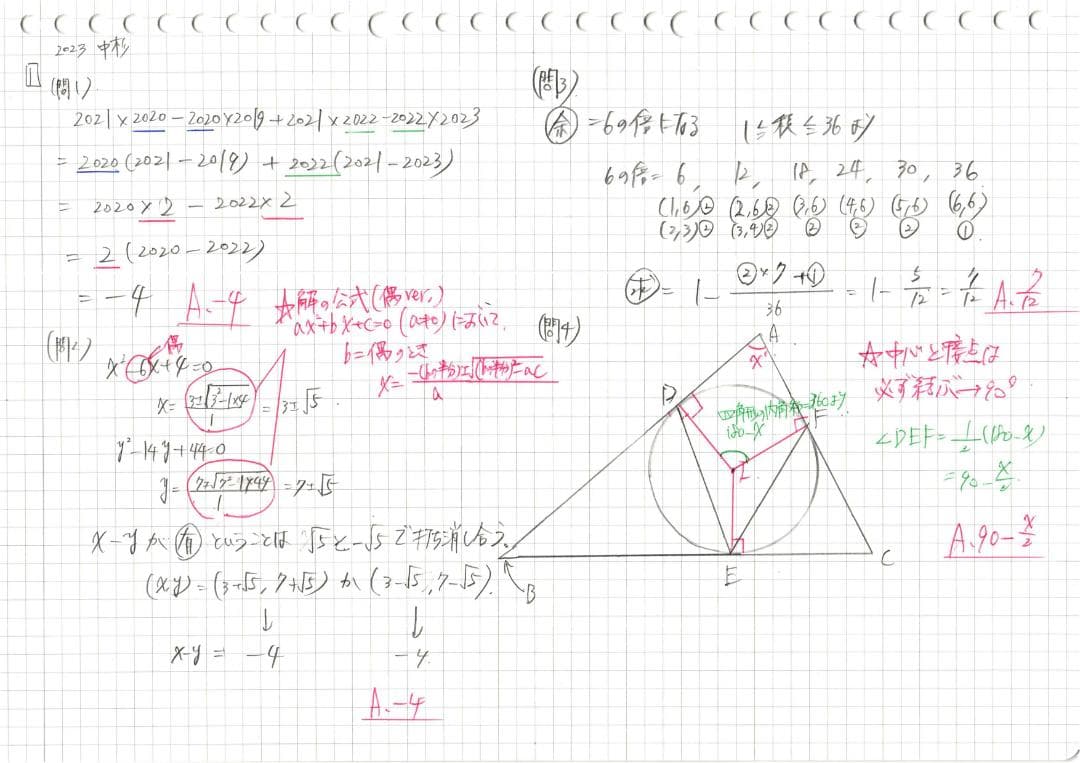 2023 中杉
1
(問1)
2021×2020－2020×2019+2021×2022－2022×2023
= 2020(2021－2019) + 2022(2021－2023)
= 2020×2 － 2022×2
= 2(2020－2022)
= －4 A.－4
(問2)
偶
x²－6x+4=0
x= 3±√3²－1×4 / 1 = 3±√5
y²－14y+44=0
y= 7±√7²－1×44 / 1 =7±√5
☆解の公式(偶ver.)
ax²+bx+c=0 (a≠0)において
b=偶のとき
x= －(bの半分)±√(bの半分)²－ac / a
x－yが有ということは √5と－√5で打ち消し合う。
(x,y)=(3+√5, 7+√5)か(3－√5, 7－√5).
↓ ↓
x－y= －4 －4.
A.－4
(問3)
余=6の倍になる 1≦積≦36より
6の倍= 6, 12, 18, 24, 30, 36
(1,6)② (2,6)② (3,6) (4,6) (5,6) (6,6)
(2,3)② (3,4)② ② ② ② ①.
求= 1－ ②×7+① / 36 = 1－ 5/12 = 7/12 A. 7/12
(問4)
A
x
D
四角形の内角和=360より
180－x
F
I
E
B
C
☆中心と接点は
必ず結ぶ→90°
∠DEF= 1/2(180－x)
=90－x/2
A.90－x/2